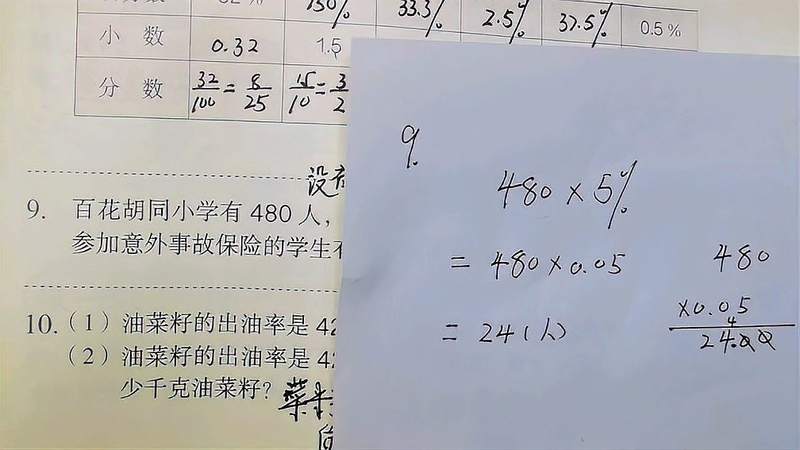 32% 150% 33.3% 2.5% 37.5% 0.5%
小数 0.32 1.5
分数 32/100=8/25 15/10=3/2
没有
9. 百花胡同小学有 480 人,
参加意外事故保险的学生
10.(1)油菜籽的出油率是 42
(2)油菜籽的出油率是 42
少千克油菜籽?
菜籽
9.
480×5%
=480×0.05
=24(人)
480
×0.05
24.00